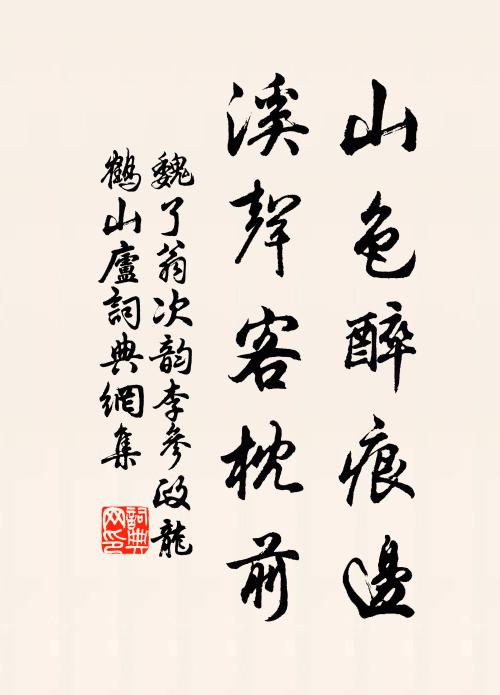 山色醉痕邊
溪聲客枕前
魏了翁次韵李參政龍
鶴山廬詞典網集
詞典网印